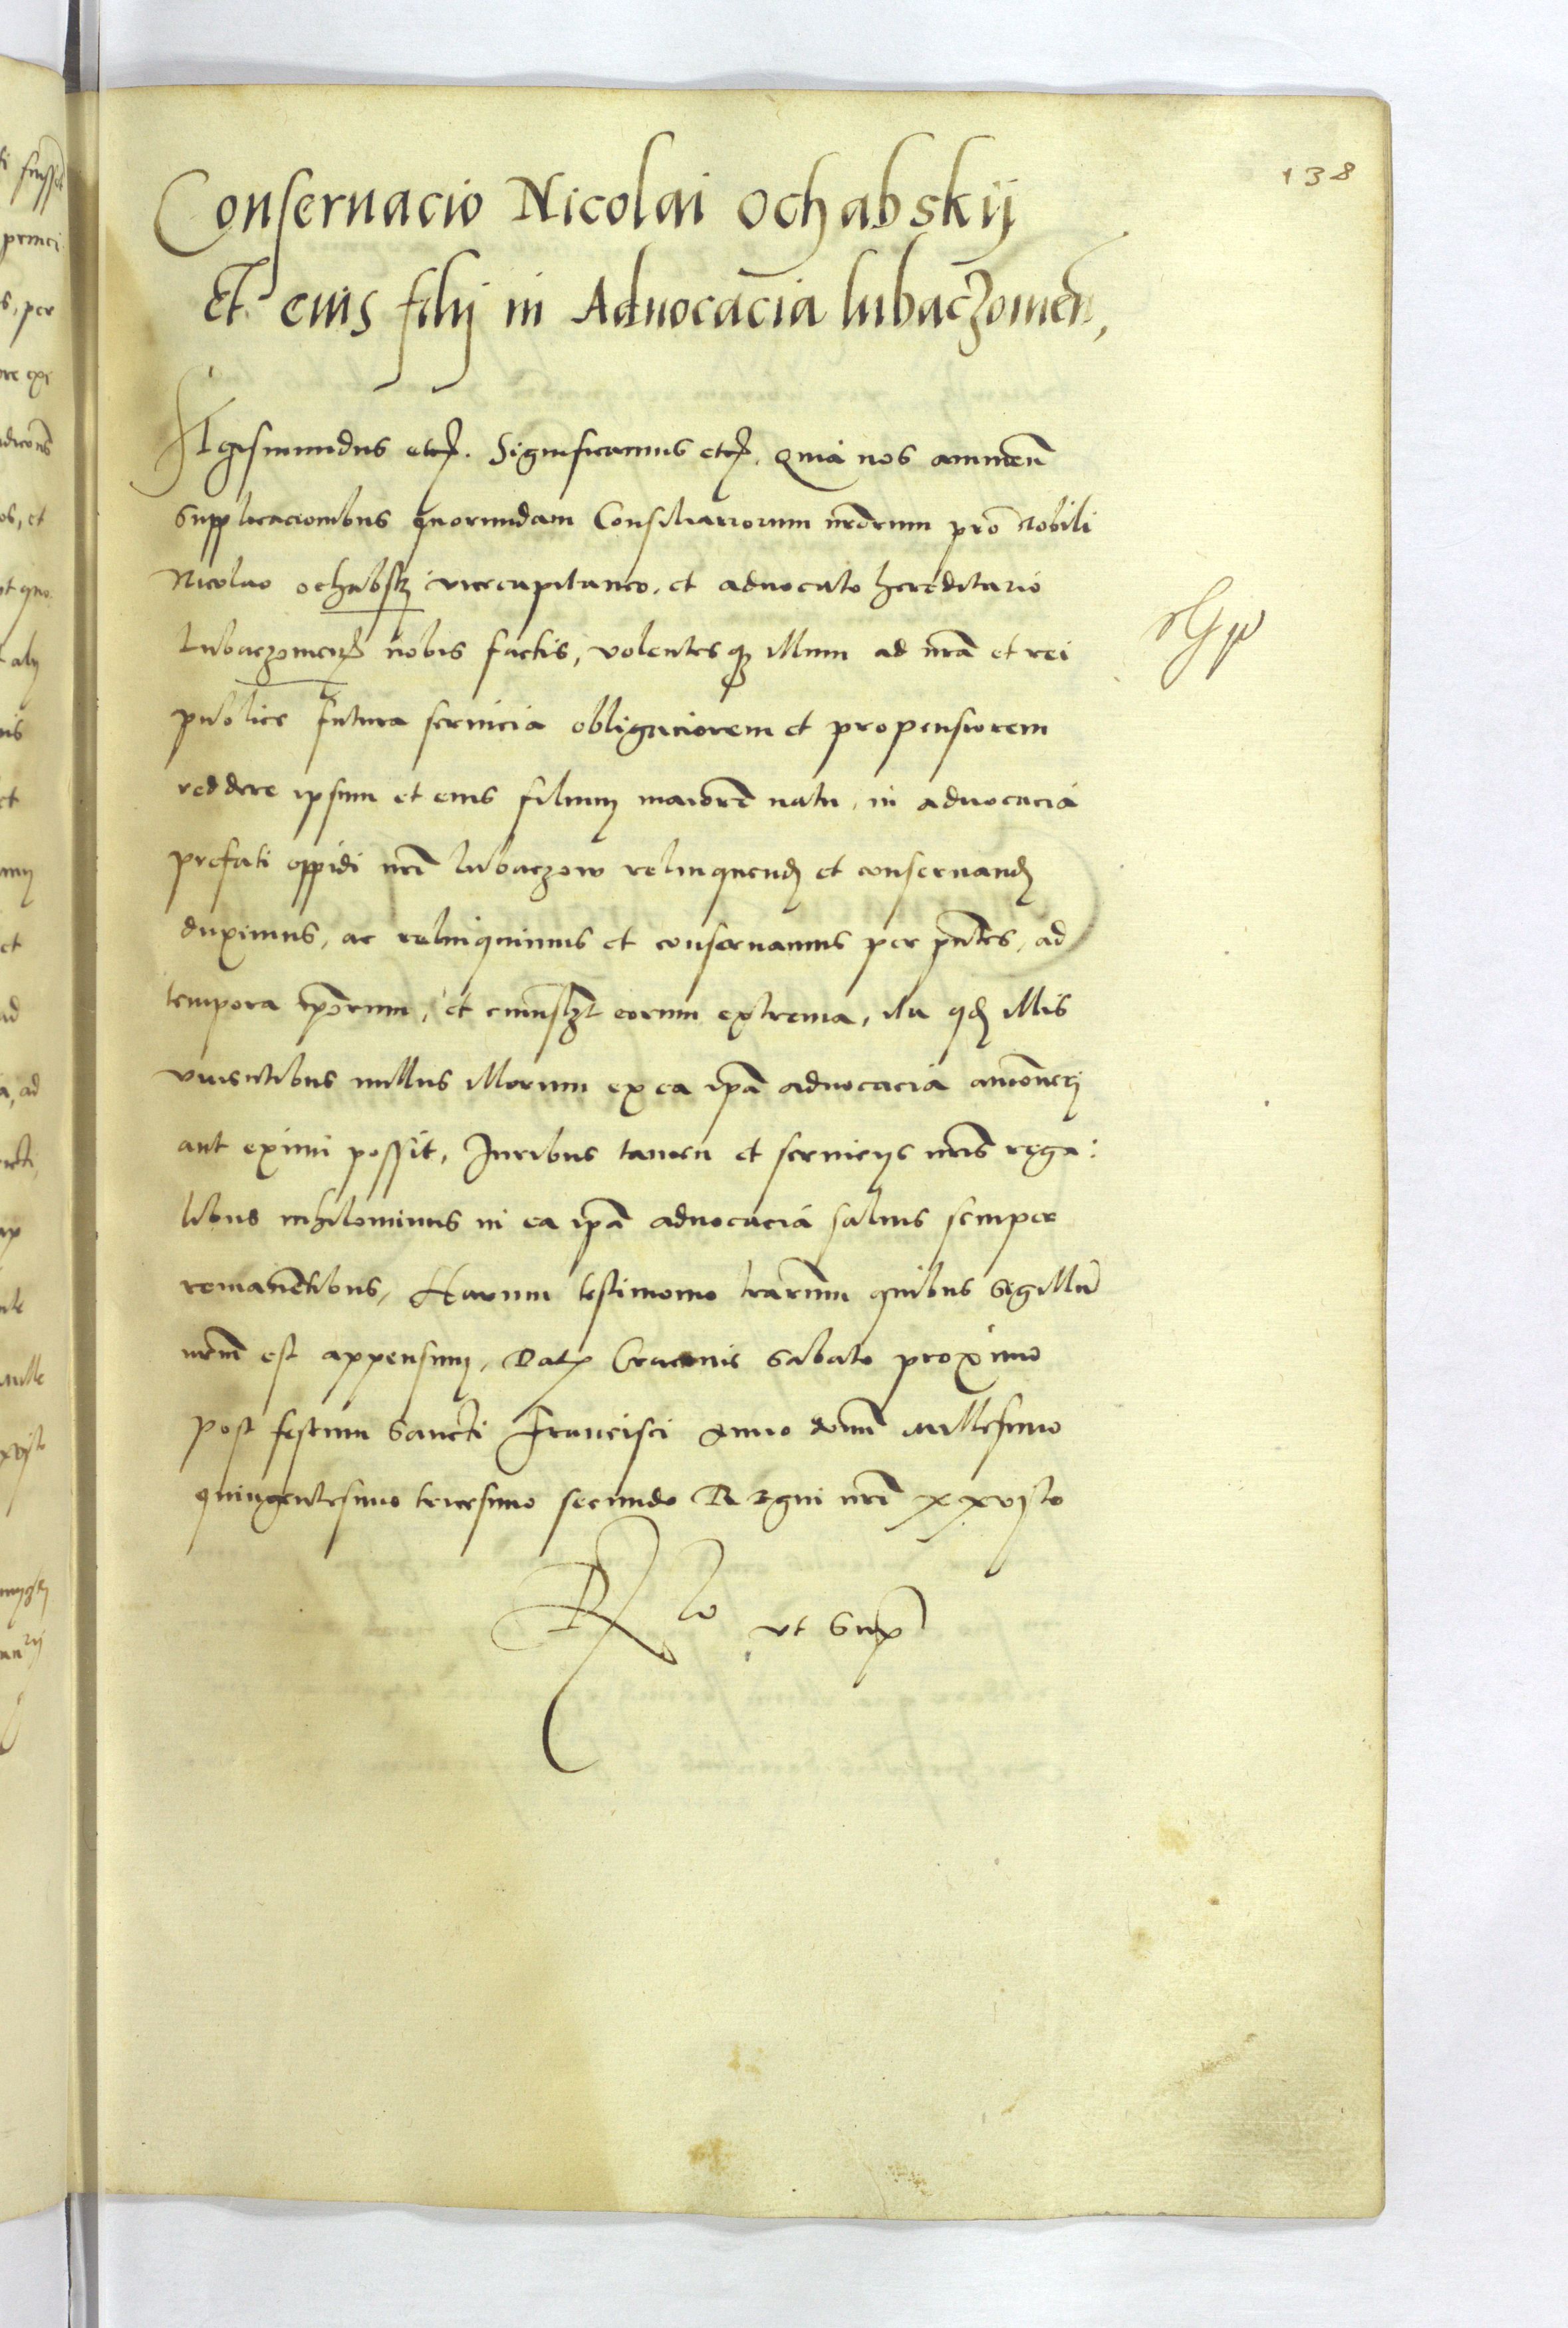 138
Conseruacio Nicolai Ochabskij
Et eius filij in Aduocacia lubaczouien̄,
Sigismundus etc̄. Significamus etc̄. Quia nos annuen̄
supplicacionibus quorundam Consiliariorum nr̄orum pro Nobili
Nicolao Ochabskj vicecapitaneo, et aduocato hereditario
Lubaczouien̄ nobis factis, volentesq₃ illum ad nr̄a et rei
publice futura seruicia obligaciorem et propensiorem
reddere ipsum et eius filium maiorē natu, in aduocacia
prefati oppidi nr̄i Lubaczow relinquend̄ et conseruand̄
duximus, ac relinquimus et conseruamus per pn̄tes, ad
tempora ip̄orum, et cuiuslꝫt eorum extrema, ita qd̄ illis
viuentibus nullus illorum ex ea ip̄a aduocacia amoueri
aut eximi possit, Iuribus tamen et seruicijs nr̄is rega:
libus nihilominus in ea ip̄a aduocacia saluis semper
remanētibus, Harum testimonio lr̄arum quibus sigillū
nr̄um est appensum, Dat̄ Cracouie Sabato proximo
post festum Sancti Francisci Anno domī millesimo
quingentesimo tricesimo secundo Regni nr̄i xxvjto
R lo vt Supᷓ